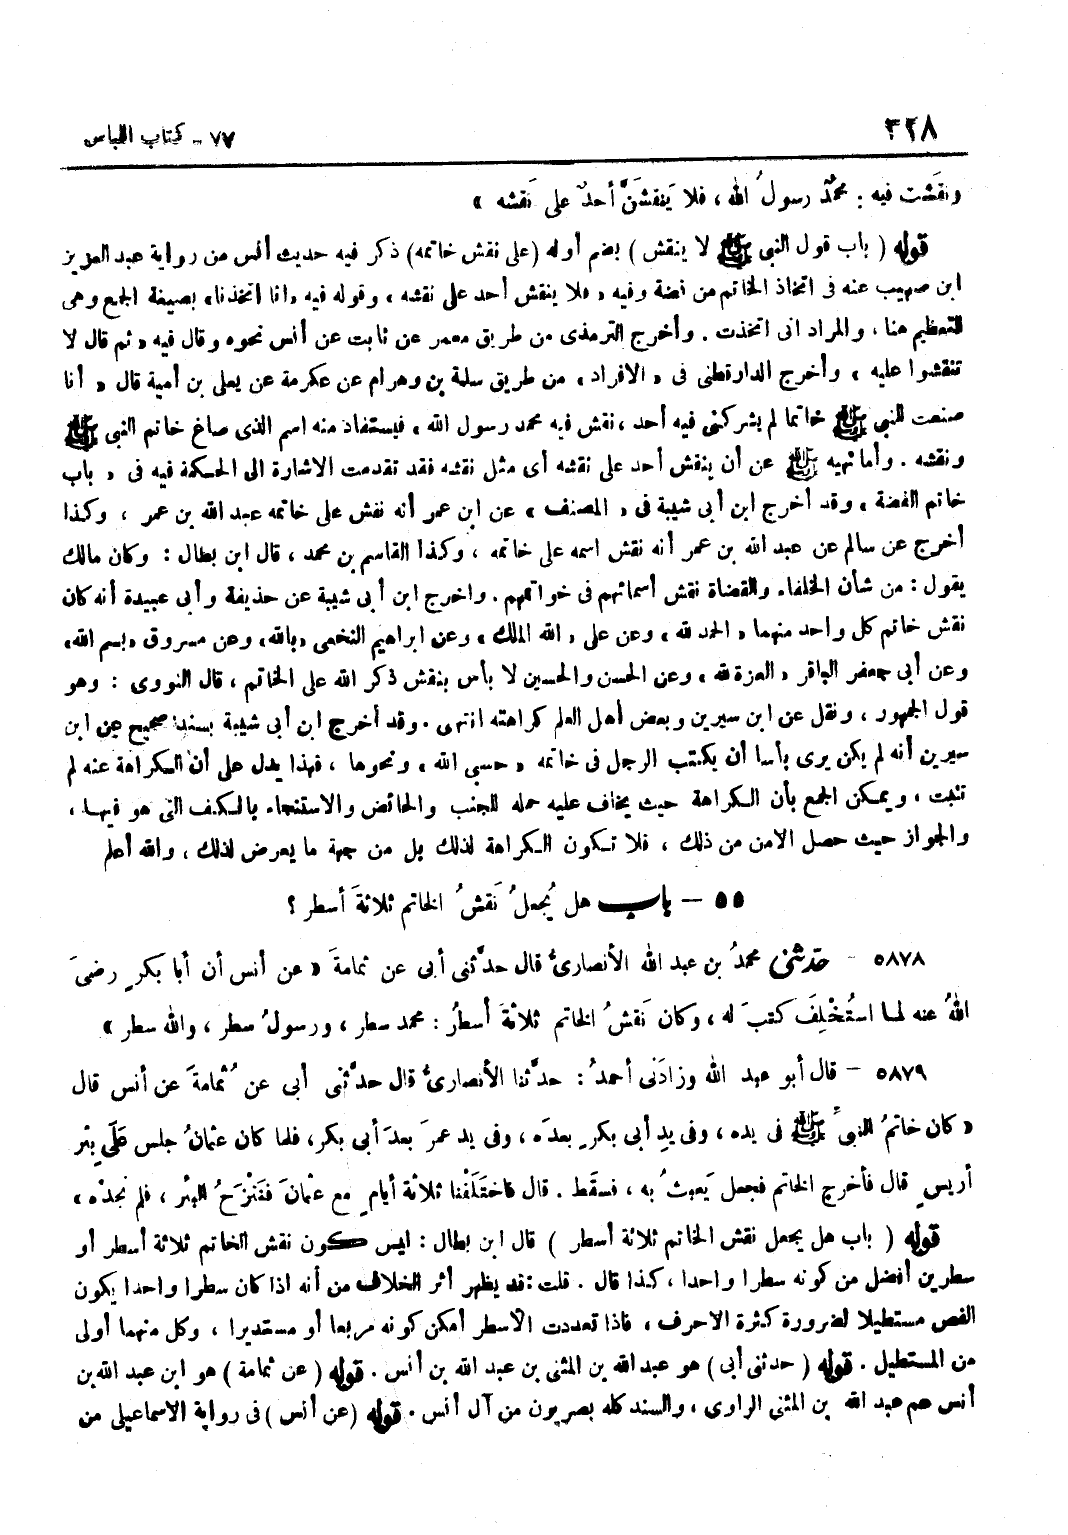 ٣٢٨
٧٧ - كتاب اللباس
ونقَشت فيه : محمدٌ رسولُ الله ، فلا يَنقشَنَّ أحدٌ على نَقشه »
قوله ( باب قول النبي ﷺ لا ينقش ) بضم أوله (على نقش خاتمه) ذكر فيه حديث أنس من رواية عبد العزيز
ابن صهيب عنه فى اتخاذ الخاتم من فضة وفيه « فلا ينقش أحد على نقشه » وقوله فيه « انا اتخذنا » بصيغة الجمع وهى
للتعظيم هنا ، والمراد انى اتخذت . وأخرج الترمذى من طريق معمر عن ثابت عن أنس نحوه وقال فيه « ثم قال لا
تنقشوا عليه » وأخرج الدارقطنى فى « الافراد » من طريق سلمة بن وهرام عن عكرمة عن يعلى بن أمية قال « أنا
صنعت للنبي ﷺ خاتما لم يشركنى فيه أحد ، نقش فيه محمد رسول الله » فيستفاد منه اسم الذى صاغ خاتم النبى ﷺ
ونقشه . وأما نهيه ﷺ عن أن ينقش أحد على نقشه أى مثل نقشه فقد تقدمت الاشارة الى الحكمة فيه فى « باب
خاتم الفضة » وقد أخرج ابن أبى شيبة فى « المصنف » عن ابن عمر أنه نقش على خاتمه عبد الله بن عمر ، وكذا
أخرج عن سالم عن عبد الله بن عمر أنه نقش اسمه على خاتمه ، وكذا القاسم بن محمد ، قال ابن بطال : وكان مالك
يقول : من شأن الخلفاء والقضاة نقش أسمائهم فى خواتمهم . واخرج ابن أبى شيبة عن حذيفة وأبى عبيدة أنه كان
نقش خاتم كل واحد منهما « الحمد لله » وعن على « الله الملك » وعن ابراهيم النخعى « بالله » وعن مسروق « بسم الله »
وعن أبى جعفر الباقر « العزة لله » وعن الحسن والحسين لا بأس بنقش ذكر الله على الخاتم ، قال النووى : وهو
قول الجمهور ، ونقل عن ابن سيرين وبعض أهل العلم كراهته انتهى . وقد أخرج ابن أبى شيبة بسند صحيح عن ابن
سيرين أنه لم يكن يرى بأسا أن يكتب الرجل فى خاتمه « حسبى الله » ونحوها ، فهذا يدل على أن الكراهة عنه لم
تثبت ، ويمكن الجمع بأن الكراهة حيث يخاف عليه حمله للجنب والحائض والاستنجاء بالكف التى هو فيها ،
والجواز حيث حصل الامن من ذلك ، فلا تكون الكراهة لذلك بل من جهة ما يعرض لذلك ، والله أعلم
٥٥ - باب هل يُجعلُ نَقشُ الخاتم ثلاثةَ أسطر ؟
٥٨٧٨ - حدثنى محمدُ بن عبد الله الأنصارىُّ قال حدَّثنى أبى عن ثمامةَ « عن أنس أن أبا بكرٍ رضىَ
اللهُ عنه لما استُخْلِفَ كتبَ له ، وكان نَقشُ الخاتم ثلاثةَ أسطُر : محمد سطر ، ورسولُ سطر ، والله سطر »
٥٨٧٩ - قال أبو عبد الله وزادَنى أحمدُ : حدَّثنا الأنصارىُّ قال حدَّثنى أبى عن ثُمامةَ عن أنس قال
« كان خاتمُ النبىِّ ﷺ فى يده ، وفى يدِ أبى بكرٍ بعدَه ، وفى يد عمرَ بعدَ أبى بكر ، فلما كان عثمانُ جلس عَلَى بِئر
أريسٍ قال فأخرج الخاتم فجعل يَعبثُ به ، فسقَط . قال فاختَلَفْنا ثلاثة أيامٍ مع عثمانَ فنَنْزَحُ البئر ، فلم نجدْه »
قوله ( باب هل يجعل نقش الخاتم ثلاثة أسطر ) قال ابن بطال : ليس كون نقش الخاتم ثلاثة أسطر أو
سطرين أفضل من كونه سطرا واحدا ، كذا قال . قلت : قد يظهر أثر الخلاف من أنه اذا كان سطرا واحدا يكون
الفص مستطيلا لضرورة كثرة الاحرف ، فاذا تعددت الأسطر أمكن كونه مربعا أو مستديرا ، وكل منهما أولى
من المستطيل . قوله ( حدثنى أبى ) هو عبد الله بن المثنى بن عبد الله بن أنس . قوله ( عن ثمامة ) هو ابن عبد الله بن
أنس عم عبد الله بن المثنى الراوى ، والسند كله بصريون من آل أنس . قوله ( عن أنس ) فى رواية الاسماعيلى من